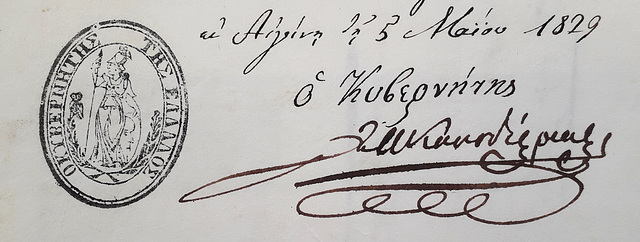 Ο ΚΥΒΕΡΝΗΤΗΣ ΤΗΣ ΕΛΛΑΔΟΣ
Αἰγίνη τῇ 5 Μαΐου 1829
ὁ Κυβερνήτης
Καποδίστριας